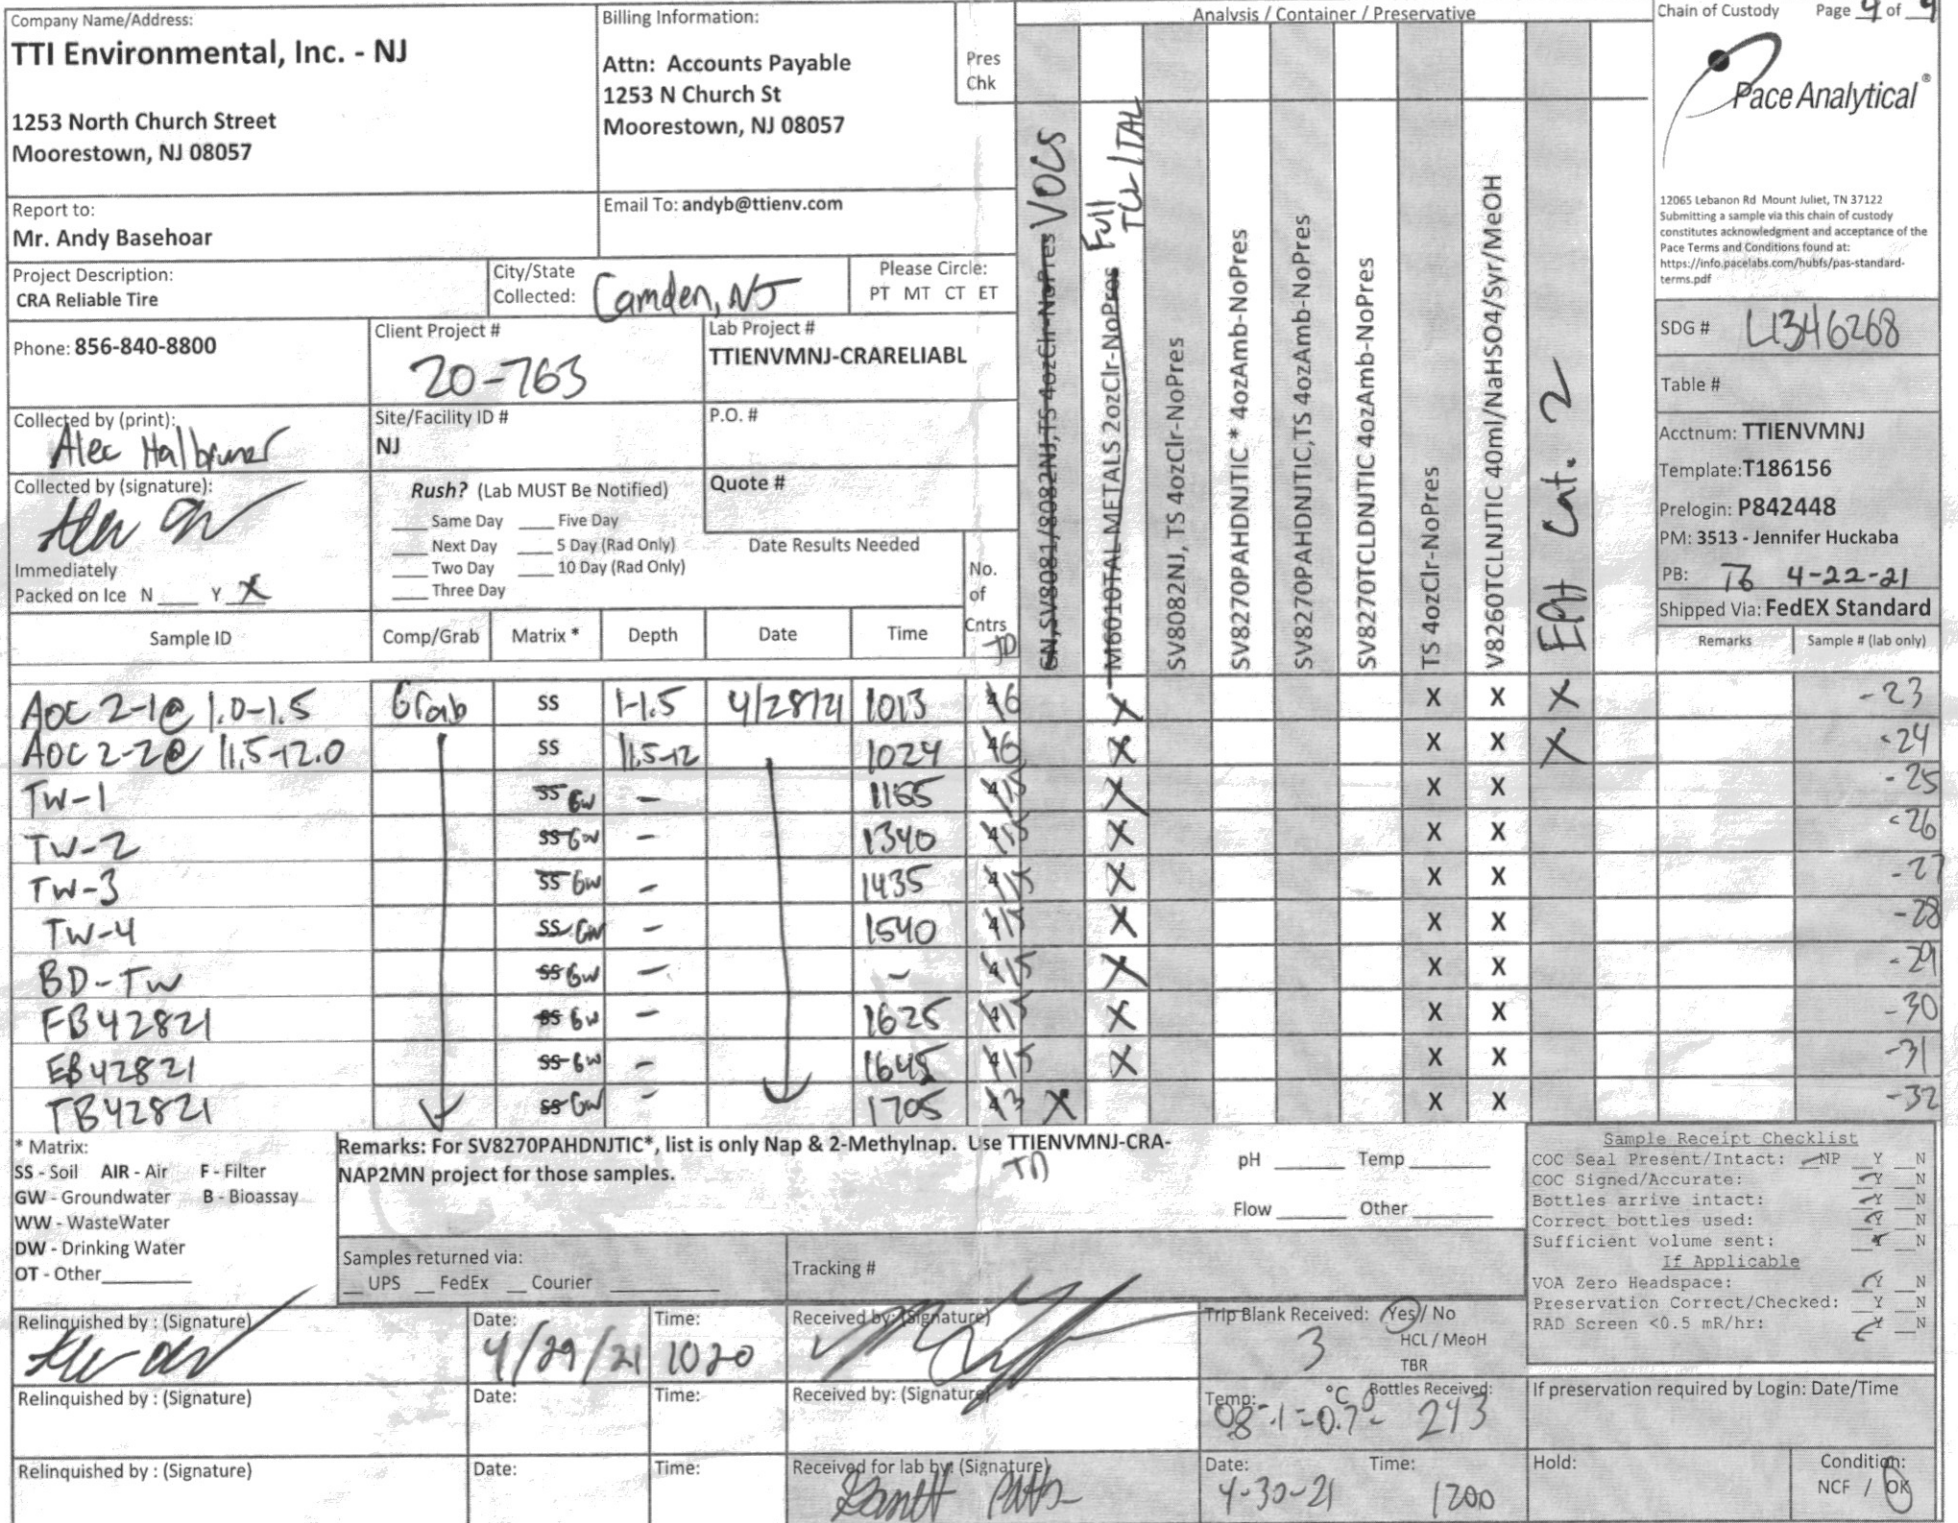 Company Name/Address:
TTI Environmental, Inc. - NJ
1253 North Church Street
Moorestown, NJ 08057
Billing Information:
Attn: Accounts Payable
1253 N Church St
Moorestown, NJ 08057
Pres
Chk
Analysis / Container / Preservative
Chain of Custody Page 4 of 4
Pace Analytical®
12065 Lebanon Rd Mount Juliet, TN 37122
Submitting a sample via this chain of custody
constitutes acknowledgment and acceptance of the
Pace Terms and Conditions found at:
https://info.pacelabs.com/hubfs/pas-standard-
terms.pdf
Report to:
Mr. Andy Basehoar
Email To: andyb@ttienv.com
Project Description:
CRA Reliable Tire
City/State
Collected: Camden, NJ
Please Circle:
PT MT CT ET
Phone: 856-840-8800
Client Project #
20-763
Lab Project #
TTIENVMNJ-CRARELIABL
Collected by (print):
Alec Halbruner
Site/Facility ID #
NJ
P.O. #
Collected by (signature):
Rush? (Lab MUST Be Notified)
Same Day Five Day
Next Day 5 Day (Rad Only)
Two Day 10 Day (Rad Only)
Three Day
Quote #
Date Results Needed
Immediately
Packed on Ice N Y X
No.
of
Cntrs
SV8081/8082NJ,TS 4ozClr-NoPres VOCS
M6010TALMETALS 2ozClr-NoPres Full TCL/TAL
SV8082NJ, TS 4ozClr-NoPres
SV8270PAHDNJTIC* 4ozAmb-NoPres
SV8270PAHDNJTIC,TS 4ozAmb-NoPres
SV8270TCLDNJTIC 4ozAmb-NoPres
TS 4ozClr-NoPres
V8260TCLNJTIC 40ml/NaHSO4/Syr/MeOH
EPH Cat. 2
SDG # L1346268
Table #
Acctnum: TTIENVMNJ
Template:T186156
Prelogin: P842448
PM: 3513 - Jennifer Huckaba
PB: TB 4-22-21
Shipped Via: FedEX Standard
Remarks Sample # (lab only)
Sample ID Comp/Grab Matrix * Depth Date Time
AOC 2-1@ 1.0-1.5 Grab SS 1-1.5 4/28/21 1013 6 X X X X -23
AOC 2-2@ 11.5-12.0 SS 11.5-12 1024 6 X X X X -24
TW-1 SS GW - 1155 15 X X X -25
TW-2 SS GW - 1340 15 X X X -26
TW-3 SS GW - 1435 15 X X X -27
TW-4 SS GW - 1540 15 X X X -28
BD-TW SS GW - - 15 X X X -29
FB42821 SS GW - 1625 15 X X X -30
EB42821 SS GW - 1645 15 X X X -31
TB42821 SS GW - 1705 3 X X X -32
* Matrix:
SS - Soil AIR - Air F - Filter
GW - Groundwater B - Bioassay
WW - WasteWater
DW - Drinking Water
OT - Other
Remarks: For SV8270PAHDNJTIC*, list is only Nap & 2-Methylnap. Use TTIENVMNJ-CRA-
NAP2MN project for those samples.
pH Temp
Flow Other
Samples returned via:
UPS FedEx Courier
Tracking #
Sample Receipt Checklist
COC Seal Present/Intact: NP Y N
COC Signed/Accurate: Y N
Bottles arrive intact: Y N
Correct bottles used: Y N
Sufficient volume sent: Y N
If Applicable
VOA Zero Headspace: Y N
Preservation Correct/Checked: Y N
RAD Screen <0.5 mR/hr: Y N
Relinquished by : (Signature)
Date: 4/29/21
Time: 1020
Received by: (Signature)
Trip Blank Received: Yes / No
3
HCL / MeOH
TBR
Relinquished by : (Signature)
Date:
Time:
Received by: (Signature)
Temp: °C Bottles Received:
243
If preservation required by Login: Date/Time
Relinquished by : (Signature)
Date:
Time:
Received for lab by: (Signature)
Date: 4-30-21
Time: 1200
Hold:
Condition:
NCF / OK